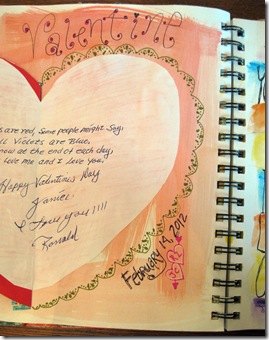 Valentine
s are red, Some people might Say,
ll Violets are Blue,
now at the end of each day,
love me and I love you,
Happy Valentines Day
I Love you !!!!
Ronald
February 14, 2012